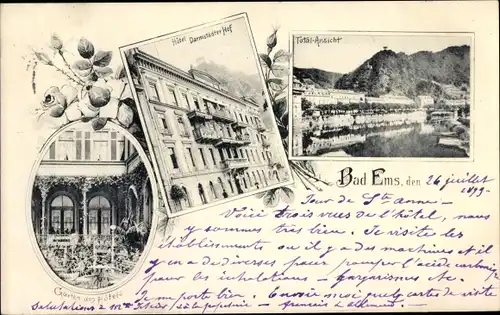 Hôtel Darmstädter Hof
Total-Ansicht
Bad Ems, den 26 juillet 1899.
Jour de Ste Anne.
Voici trois vues de l'hôtel, nous
y sommes très bien. Je visite les
établissements où il y a des machines et il
y en a de diverses pour pomper l'acide carbonique
pour les inhalations gargarismes etc.
Je me porte bien. Envoie moi quelq cartes de visite
Garten des Hôtels
Salutations à Mme à la papeterie français & allemand.